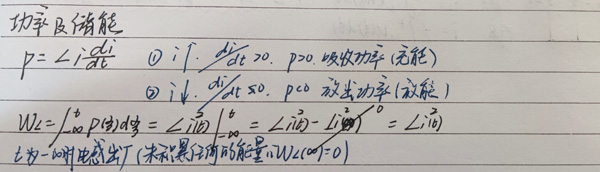 功率及储能
p = L i di/dt ① i↑. di/dt >0. p>0. 吸收功率(充能)
② i↓. di/dt ≤0. p<0 放出功率(放能)
W_L = ∫_{-∞}^{t} p(ξ)dξ = L i²(t) |_{-∞}^{t} = L i²(t) - L i²(∞) 0 = L i²(t)
t为-∞时电感出厂(未积累任何的能量∴W_L(∞)=0)